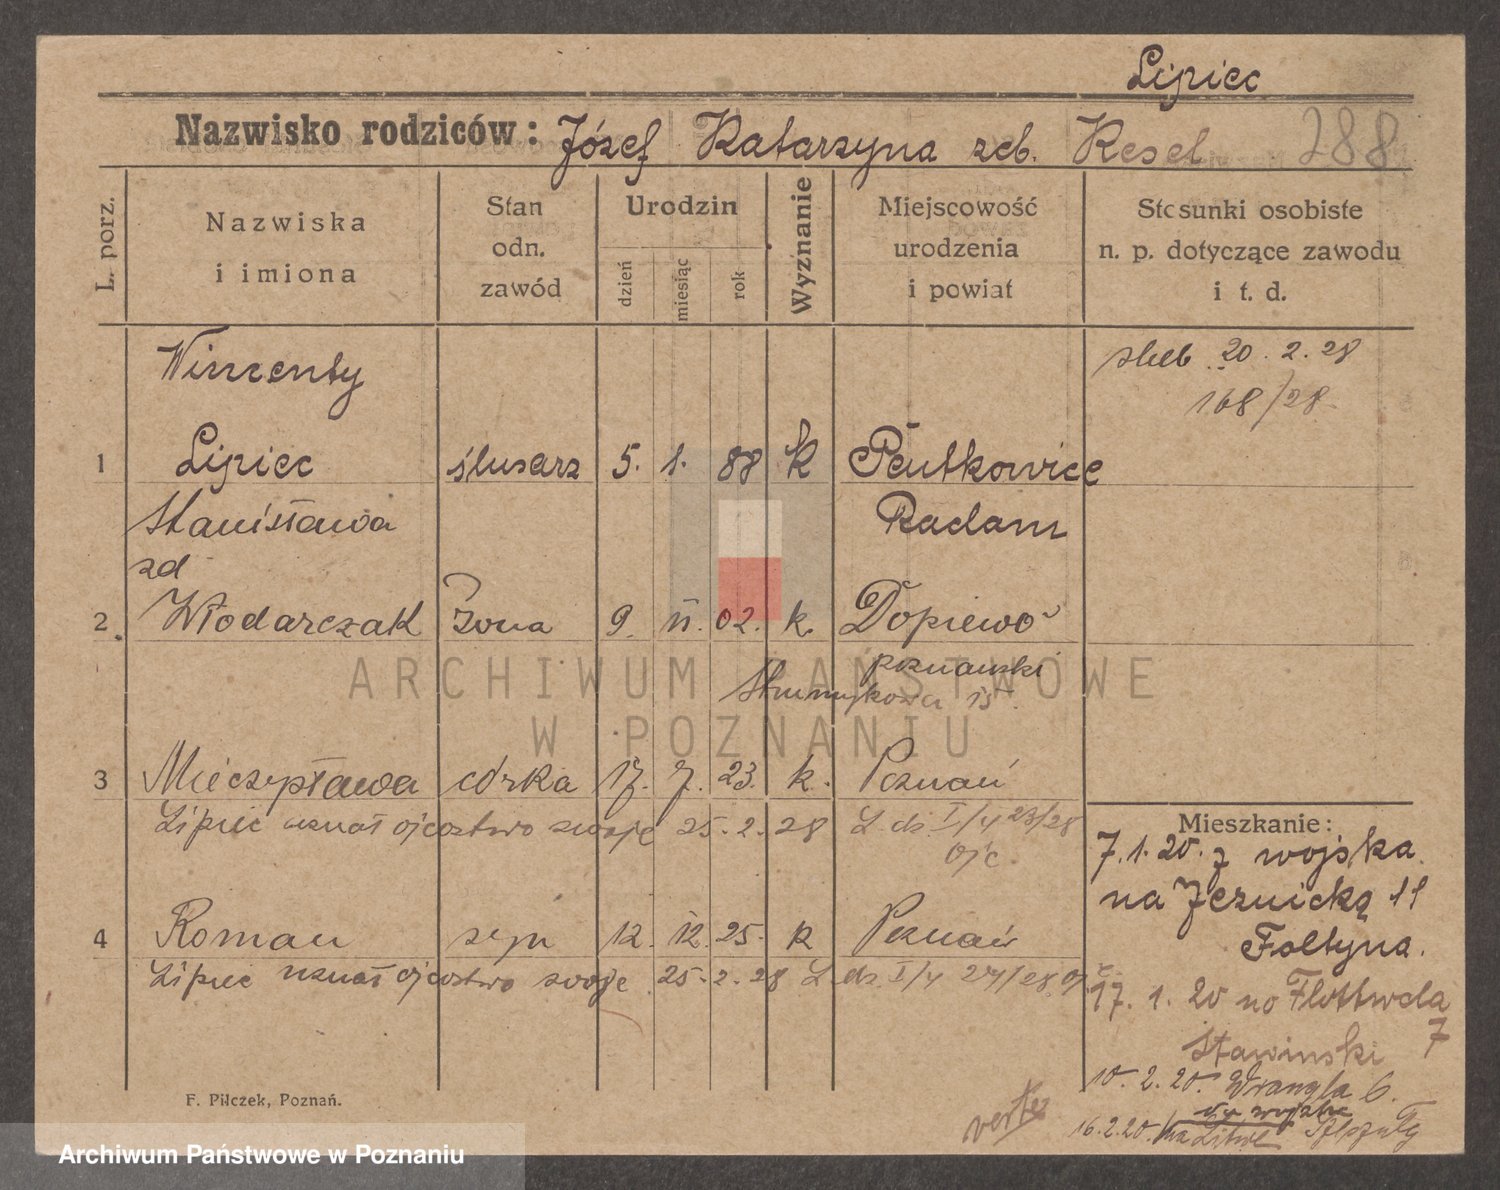 Lipiec
Nazwisko rodziców: Józef Katarzyna zeb. Resel 288
L. porz.
Nazwiska
i imiona
Stan
odn.
zawód
Urodzin
dzień
miesiąc
rok
Wyznanie
Miejscowość
urodzenia
i powiat
Stosunki osobiste
n. p. dotyczące zawodu
i t. d.
Wincenty
ślub 20. 2. 28
168/28
1 Lipiec ślusarz 5. 1. 88 k Pentkowice
Stanisława Radom
zd
2 Włodarczak żona 9. II. 02. k. Dopiewo
poznański
Strumykowa 15.
3 Mieczysława córka 17. 7. 23. k. Poznań
Lipiec uznał ojcostwo swoje 25. 2. 28 L. dz. I/4 23/28
ojc.
4 Roman syn 12. 12. 25. k Poznań
Lipiec uznał ojcostwo swoje 25. 2. 28 L. dz. I/4 24/28 oj
Mieszkanie:
7. 1. 20. z wojska
na Jeżnicką 11
Foltyna.
17. 1. 20 no Flottwela
7
Stawinski
10. 2. 20. Wrangla 6.
16.2.20. na Litwe
verte
F. Piłczek, Poznań.
ARCHIWUM PAŃSTWOWE
W POZNANIU
Archiwum Państwowe w Poznaniu